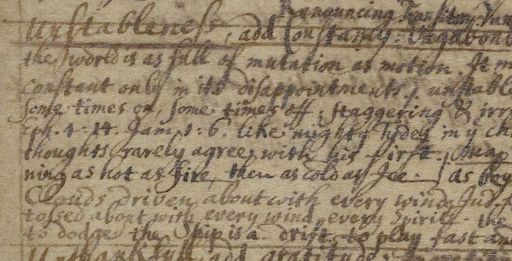 Renouncing Transitory
Unstableness, add Constancy. Vagabond
the world is as full of mutation as motion. It
constant only in its disappointments; unstable
some times on, some times off; staggering &
Eph. 4. 14. Jam. 1. 6. like mighty my
thoughts rarely agree with his first;
ning as hot as fire, then as cold as Ice. as
Clouds driven about with every wind. Jud.
tossed about with every wind, every Spirit. the
to dodge. the Ship is a drift. to play fast and
Unthankfull. add gratitude